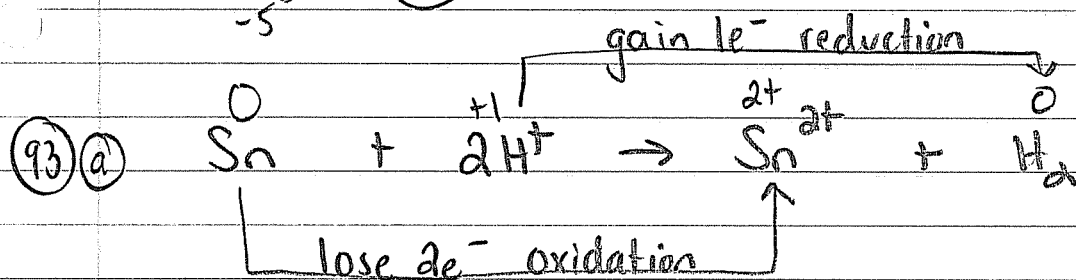 -5
gain 1e⁻ reduction
0 +1 2+ 0
93 a Sn + 2H⁺ → Sn²⁺ + H₂
lose 2e⁻ oxidation